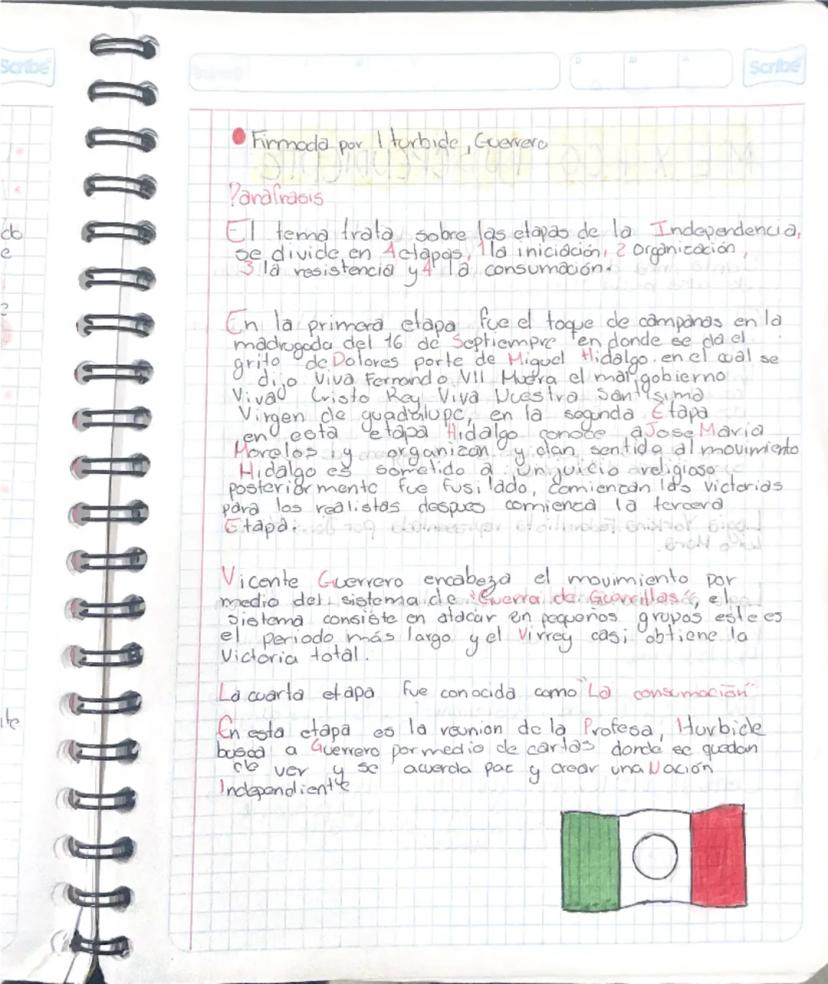 Scribe
Scribe
● Firmada por Iturbide, Guerrero
Parafrasis
El tema trata sobre las etapas de la Independencia,
se divide en 4 etapas, 1 la iniciación, 2 organización,
3 la resistencia y 4 la consumación.
En la primera etapa fue el toque de campanas en la
madrugada del 16 de Septiempre en donde se da el
grito de Dolores porte de Miguel Hidalgo. en el cual se
dijo Viva Fernando VII Muera el mar gobierno
Viva Cristo Rey Viva Nuestra Santísima
Virgen de guadalupe, en la segunda Etapa
en esta etapa Hidalgo conoce a Jose Maria
Morelos y organizan y dan sentido al movimiento
Hidalgo es sometido a un juicio religioso
posteriormente fue fusilado, comienzan las victorias
para los realistas despues comienza la tercera
Etapa.
Vicente Guerrero encabeza el movimiento por
medio del sistema de "Guerra de Guerrillas", el
sistema consiste en atacar en pequeños grupos este es
el periodo más largo y el Virrey casi obtiene la
Victoria total.
La cuarta etapa fue conocida como "La consumación"
En esta etapa es la reunion de la Profesa, Iturbide
busca a Guerrero por medio de cartas donde se quedan
de ver y se acuerda paz y crear una Nación
Independiente